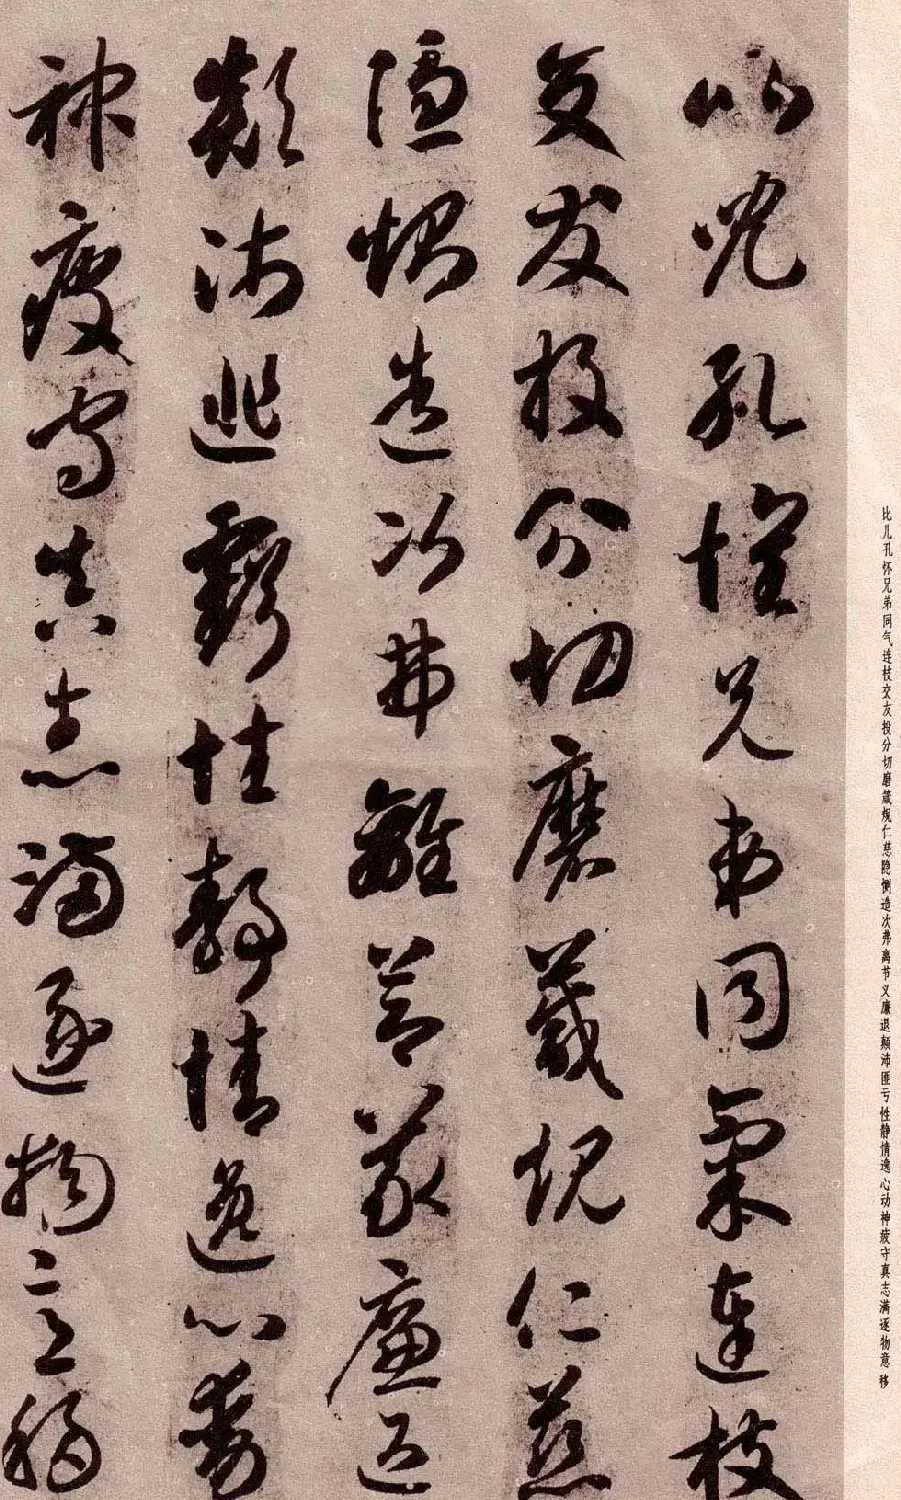 比儿孔怀兄弟同气连枝交友投分切磨箴规仁慈隐恻造次弗离节义廉退颠沛匪亏性静情逸心动神疲守真志满逐物意移
比兒孔懷兄弟同氣連枝
交友投分切磨箴規仁慈
隱惻造次弗離節義廉退
顛沛匪虧性靜情逸心動
神疲守真志滿逐物意移